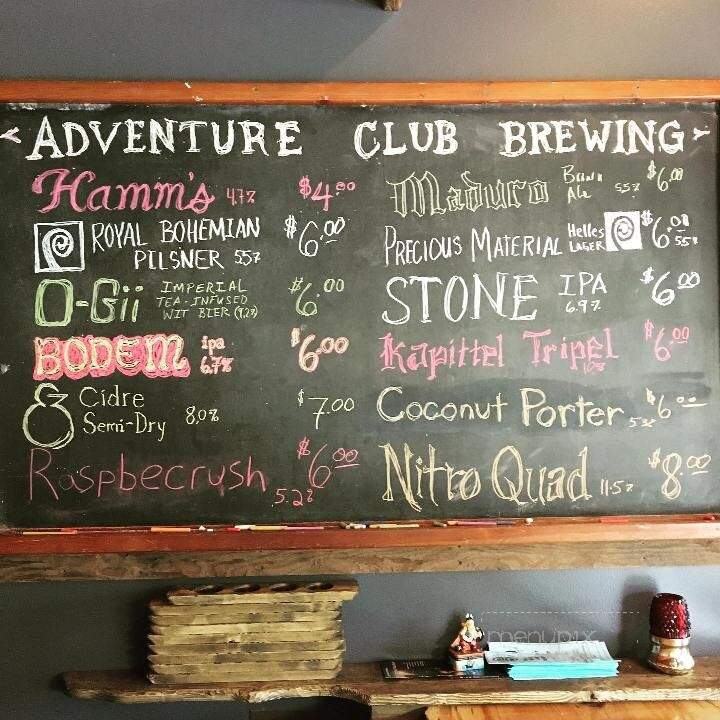 ADVENTURE CLUB BREWING
Hamm's 4.7% $4.00
ROYAL BOHEMIAN $6.00
PILSNER 5.5%
O-Gii IMPERIAL $6.00
TEA-INFUSED
WIT BIER (9.2%)
BODEM ipa $6.00
6.7%
& Cidre $7.00
Semi-Dry 8.0%
Raspbecrush 5.2% $6.00
Maduro Brown $6.00
Ale 5.5%
PRECIOUS MATERIAL Helles $6.00
LAGER 5.5%
STONE IPA $6.00
6.9%
Kapittel Tripel $6.00
10%
Coconut Porter $6.00
Nitro Quad 11.5% $8.00
menupix